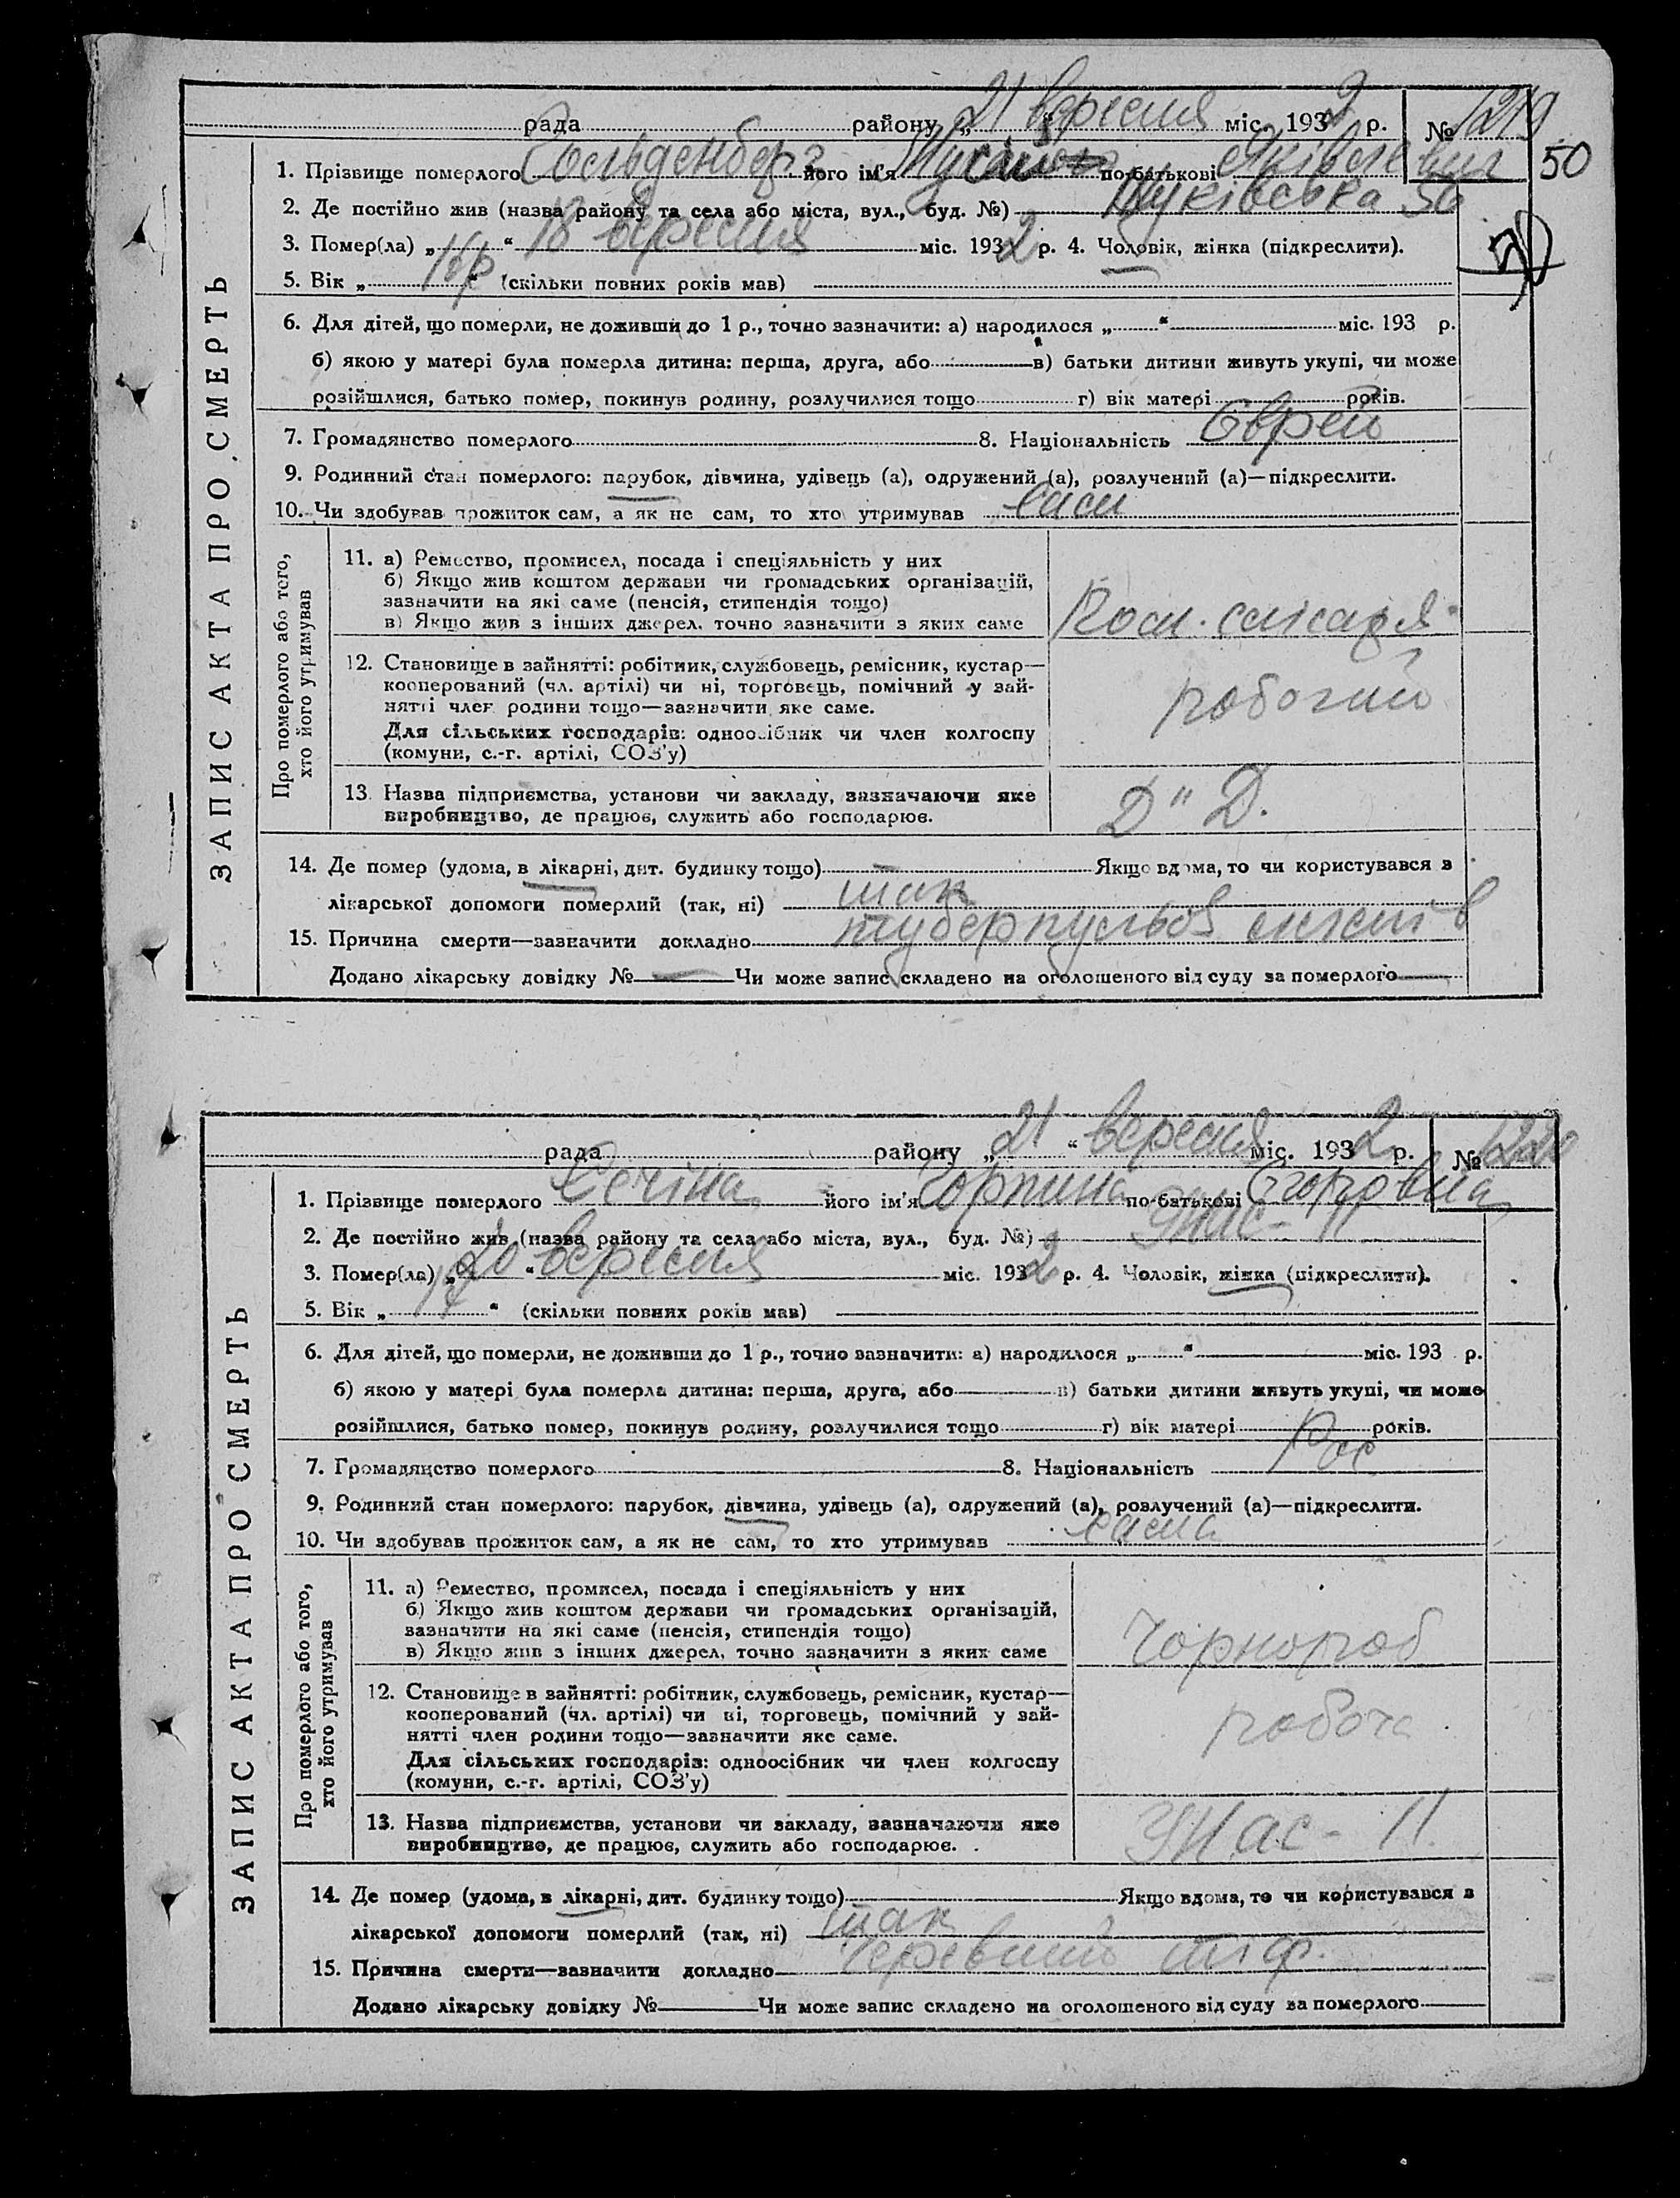 рада району „21“ вересня міс. 1932 р. № 1219
50
1. Прізвище померлого Гольденберг його ім'я по-батькові Яківлевич
2. Де постійно жив (назва району та села або міста, вул., буд. №) 56
3. Помер(ла) „ “ 18 вересня міс. 1932 р. 4. Чоловік, жінка (підкреслити).
5. Вік „ 18 р “ (скільки повних років мав)
6. Для дітей, що померли, не доживши до 1 р., точно зазначити: а) народилося „ “ міс. 193 р.
б) якою у матері була померла дитина: перша, друга, або в) батьки дитини живуть укупі, чи може
розійшлися, батько помер, покинув родину, розлучилися тощо г) вік матері років.
7. Громадянство померлого 8. Національність Єврей
9. Родинний стан померлого: парубок, дівчина, удівець (а), одружений (а), розлучений (а)—підкреслити.
10. Чи здобував прожиток сам, а як не сам, то хто утримував сам
ЗАПИС АКТА ПРО СМЕРТЬ
Про померлого або того, хто його утримував
11. а) Ремество, промисел, посада і спеціяльність у них
б) Якщо жив коштом держави чи громадських організацій,
зазначити на які саме (пенсія, стипендія тощо)
в) Якщо жив з інших джерел, точно зазначити з яких саме
Пом. слюсаря
12. Становище в зайнятті: робітник, службовець, ремісник, кустар—
кооперований (чл. артілі) чи ні, торговець, помічний у зай-
нятті член родини тощо—зазначити яке саме.
Для сільських господарів: одноосібник чи член колгоспу
(комуни, с.-г. артілі, СОЗ'у)
робочий
13. Назва підприємства, установи чи закладу, зазначаючи яке
виробництво, де працює, служить або господарює.
Д" Д.
14. Де помер (удома, в лікарні, дит. будинку тощо) Якщо вдома, то чи користувався з
лікарської допомоги померлий (так, ні) так
15. Причина смерти—зазначити докладно туберкульоз легенів
Додано лікарську довідку № Чи може запис складено на оголошеного від суду за померлого
рада району „21“ вересня міс. 1932 р. № 1220
1. Прізвище померлого Сечіна його ім'я Горпина по-батькові Єгоровна
2. Де постійно жив (назва району та села або міста, вул., буд. №) 11
3. Помер(ла) „20“ вересня міс. 1932 р. 4. Чоловік, жінка (підкреслити).
5. Вік „17“ (скільки повних років мав)
6. Для дітей, що померли, не доживши до 1 р., точно зазначити: а) народилося „ “ міс. 193 р.
б) якою у матері була померла дитина: перша, друга, або в) батьки дитини живуть укупі, чи може
розійшлися, батько помер, покинув родину, розлучилися тощо г) вік матері років.
7. Громадянство померлого 8. Національність Рос
9. Родинний стан померлого: парубок, дівчина, удівець (а), одружений (а), розлучений (а)—підкреслити.
10. Чи здобував прожиток сам, а як не сам, то хто утримував сама
ЗАПИС АКТА ПРО СМЕРТЬ
Про померлого або того, хто його утримував
11. а) Ремество, промисел, посада і спеціяльність у них
б) Якщо жив коштом держави чи громадських організацій,
зазначити на які саме (пенсія, стипендія тощо)
в) Якщо жив з інших джерел, точно зазначити з яких саме
Чорнороб
12. Становище в зайнятті: робітник, службовець, ремісник, кустар—
кооперований (чл. артілі) чи ні, торговець, помічний у зай-
нятті член родини тощо—зазначити яке саме.
Для сільських господарів: одноосібник чи член колгоспу
(комуни, с.-г. артілі, СОЗ'у)
робоча
13. Назва підприємства, установи чи закладу, зазначаючи яке
виробництво, де працює, служить або господарює.
11.
14. Де помер (удома, в лікарні, дит. будинку тощо) Якщо вдома, то чи користувався з
лікарської допомоги померлий (так, ні) так
15. Причина смерти—зазначити докладно Черевний тіф.
Додано лікарську довідку № Чи може запис складено на оголошеного від суду за померлого